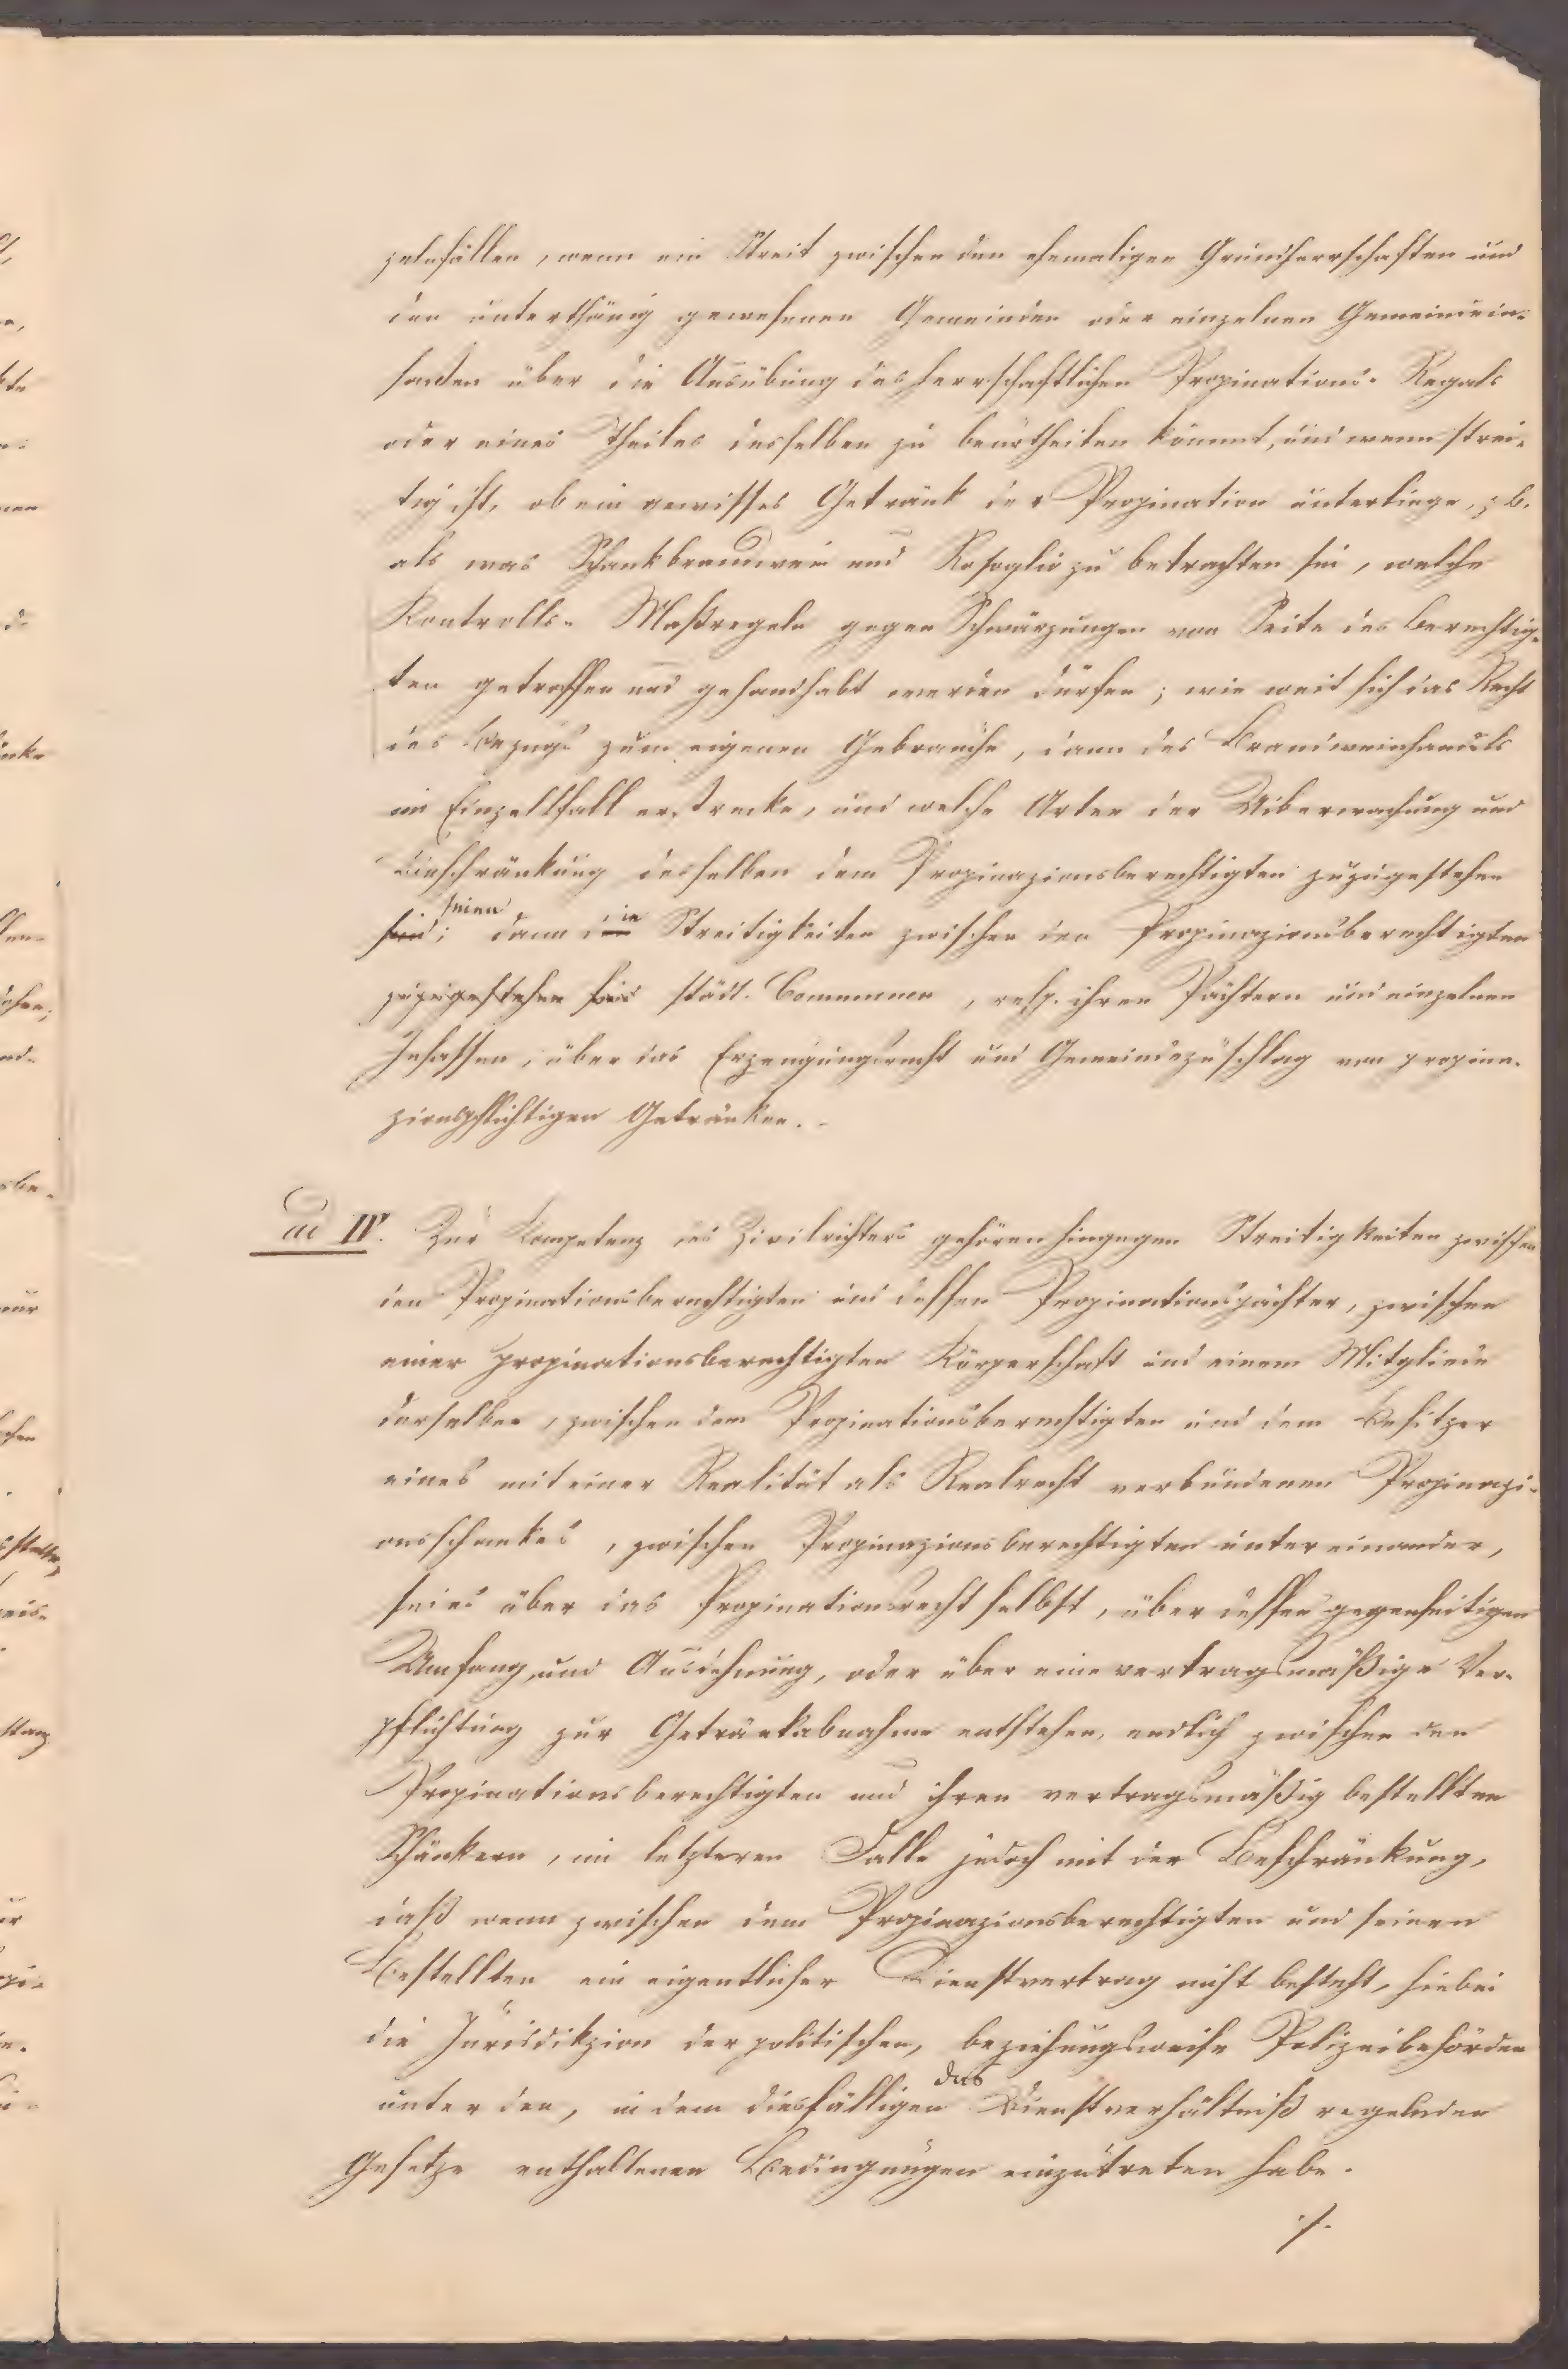 zulasfällen, wenn ein Streit zwischen den ehemaligen Grundherrschaften und
den unterthänig gewesenen Gemeinden oder einzelnen Gemeindein-
saßen über die Ausübung des herrschaftlichen Propinations-Regals
oder eines Theiles desselben zu beurtheilen kömmt, und wenn strei-
tig ist, ob ein gewisses Getränk der Propination unterliege, z. B.
als was Schankbrandwein und Rosoglio zu betrachten sei, welche
Kontrolls-Maßregeln gegen Schwärzungen von Seite des Berechtig-
ten getroffen und gehandhabt werden dürfen; wie weit sich das Recht
des Bezugs zum eigenen Gebrauche, dann des Brandweinhandels
im Einzelfall erstrecke, und welche Arten der Uiberwachung und
Einschränkung desselben dem Propinazionsberechtigten zuzugestehen
seien; dann die Streitigkeiten zwischen den Propinazionsberechtigten
zuzugestehen sind städt. Communen, resp. ihren Pächtern und einzelnen
Insassen, über das Erzeugungsrecht und Gemeindezuschlag von propina-
zionspflichtigen Getränken.
ad IV. Zur Kompetenz des Zivilrichters gehören hingegen Streitigkeiten zwischen
den Propinationsberechtigten und dessen Propinationspächter, zwischen
einer propinationsberechtigten Körperschaft und einem Mitgliede
derselben, zwischen dem Propinationsberechtigten und dem Besitzer
eines mit einer Realität als Realrecht verbundenen Propinazi-
onsschankes, zwischen Propinazionsberechtigten untereinander,
sei es über das Propinationsrecht selbst, über dessen gegenseitigen
Umfang und Ausdehnung, oder über eine vertragsmäßige Ver-
pflichtung zur Getränkabnahme entstehen, endlich zwischen den
Propinationsberechtigten und ihren vertragsmäßig bestellten
Schänkern, im letzteren Falle jedoch mit der Beschränkung,
daß wenn zwischen dem Propinazionsberechtigten und seinen
Bestellten ein eigentlicher Dienstvertrag nicht besteht, hiebei
die Jurisdikzion der politischen, beziehungsweise Polizeibehörden
unter den, in dem diesfälligen das Dienstverhältniß regelnden
Gesetze enthaltenen Bedingungen einzutreten habe.
./.